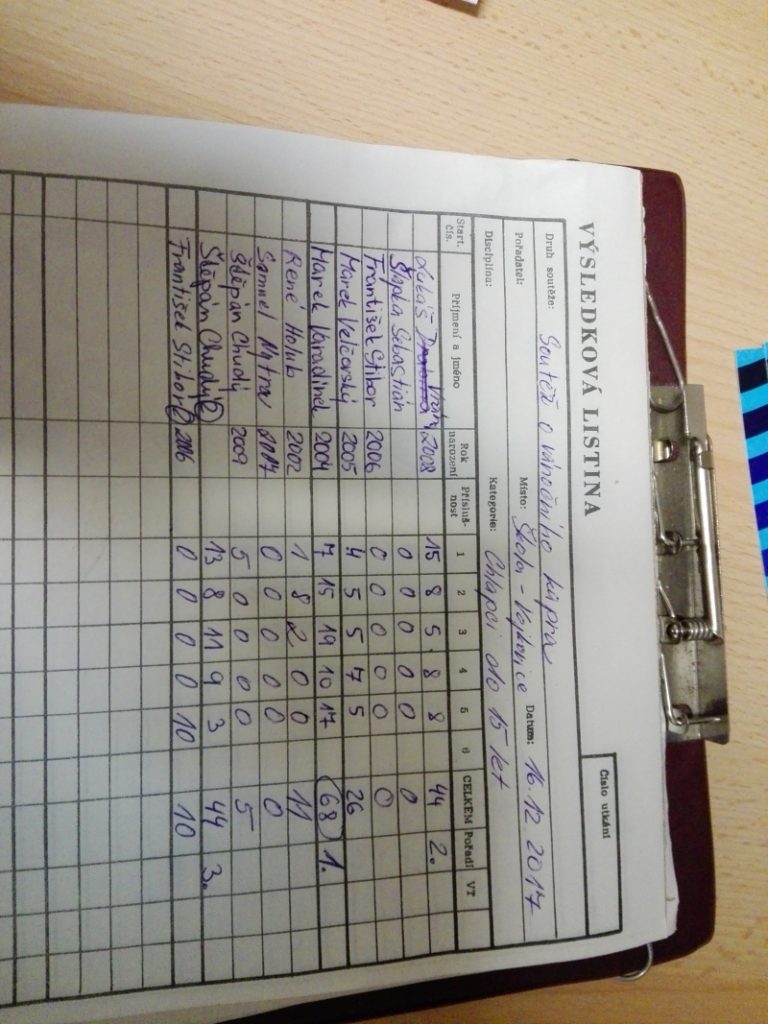 VÝSLEDKOVÁ LISTINA
Číslo utkání
Druh soutěže: Soutěž o vánočního kapra
Pořadatel: Místo: Škola - Vojkovice Datum: 16.12.2017
Disciplina: Kategorie: Chlapci do 15 let
Start. čís. Příjmení a jméno Rok narození Přísluš-nost 1 2 3 4 5 6 CELKEM Pořadí VT
Lukáš 2008 15 8 5 8 8 44 2.
Šlapka Sebastián 0 0 0 0 0 0
František Stibor 2006 0 0 0 0 0 0
Marek Velčovský 2005 4 5 5 7 5 26
Marek Varadínek 2004 7 15 19 10 17 68 1.
René Holub 2002 1 8 2 0 0 11
Samuel 0 0 0 0 0 0
Štěpán Chudý 2009 5 0 0 0 0 5
Štěpán Chudý 2 13 8 11 9 3 44 3.
František Stibor 2 2006 0 0 0 0 10 10